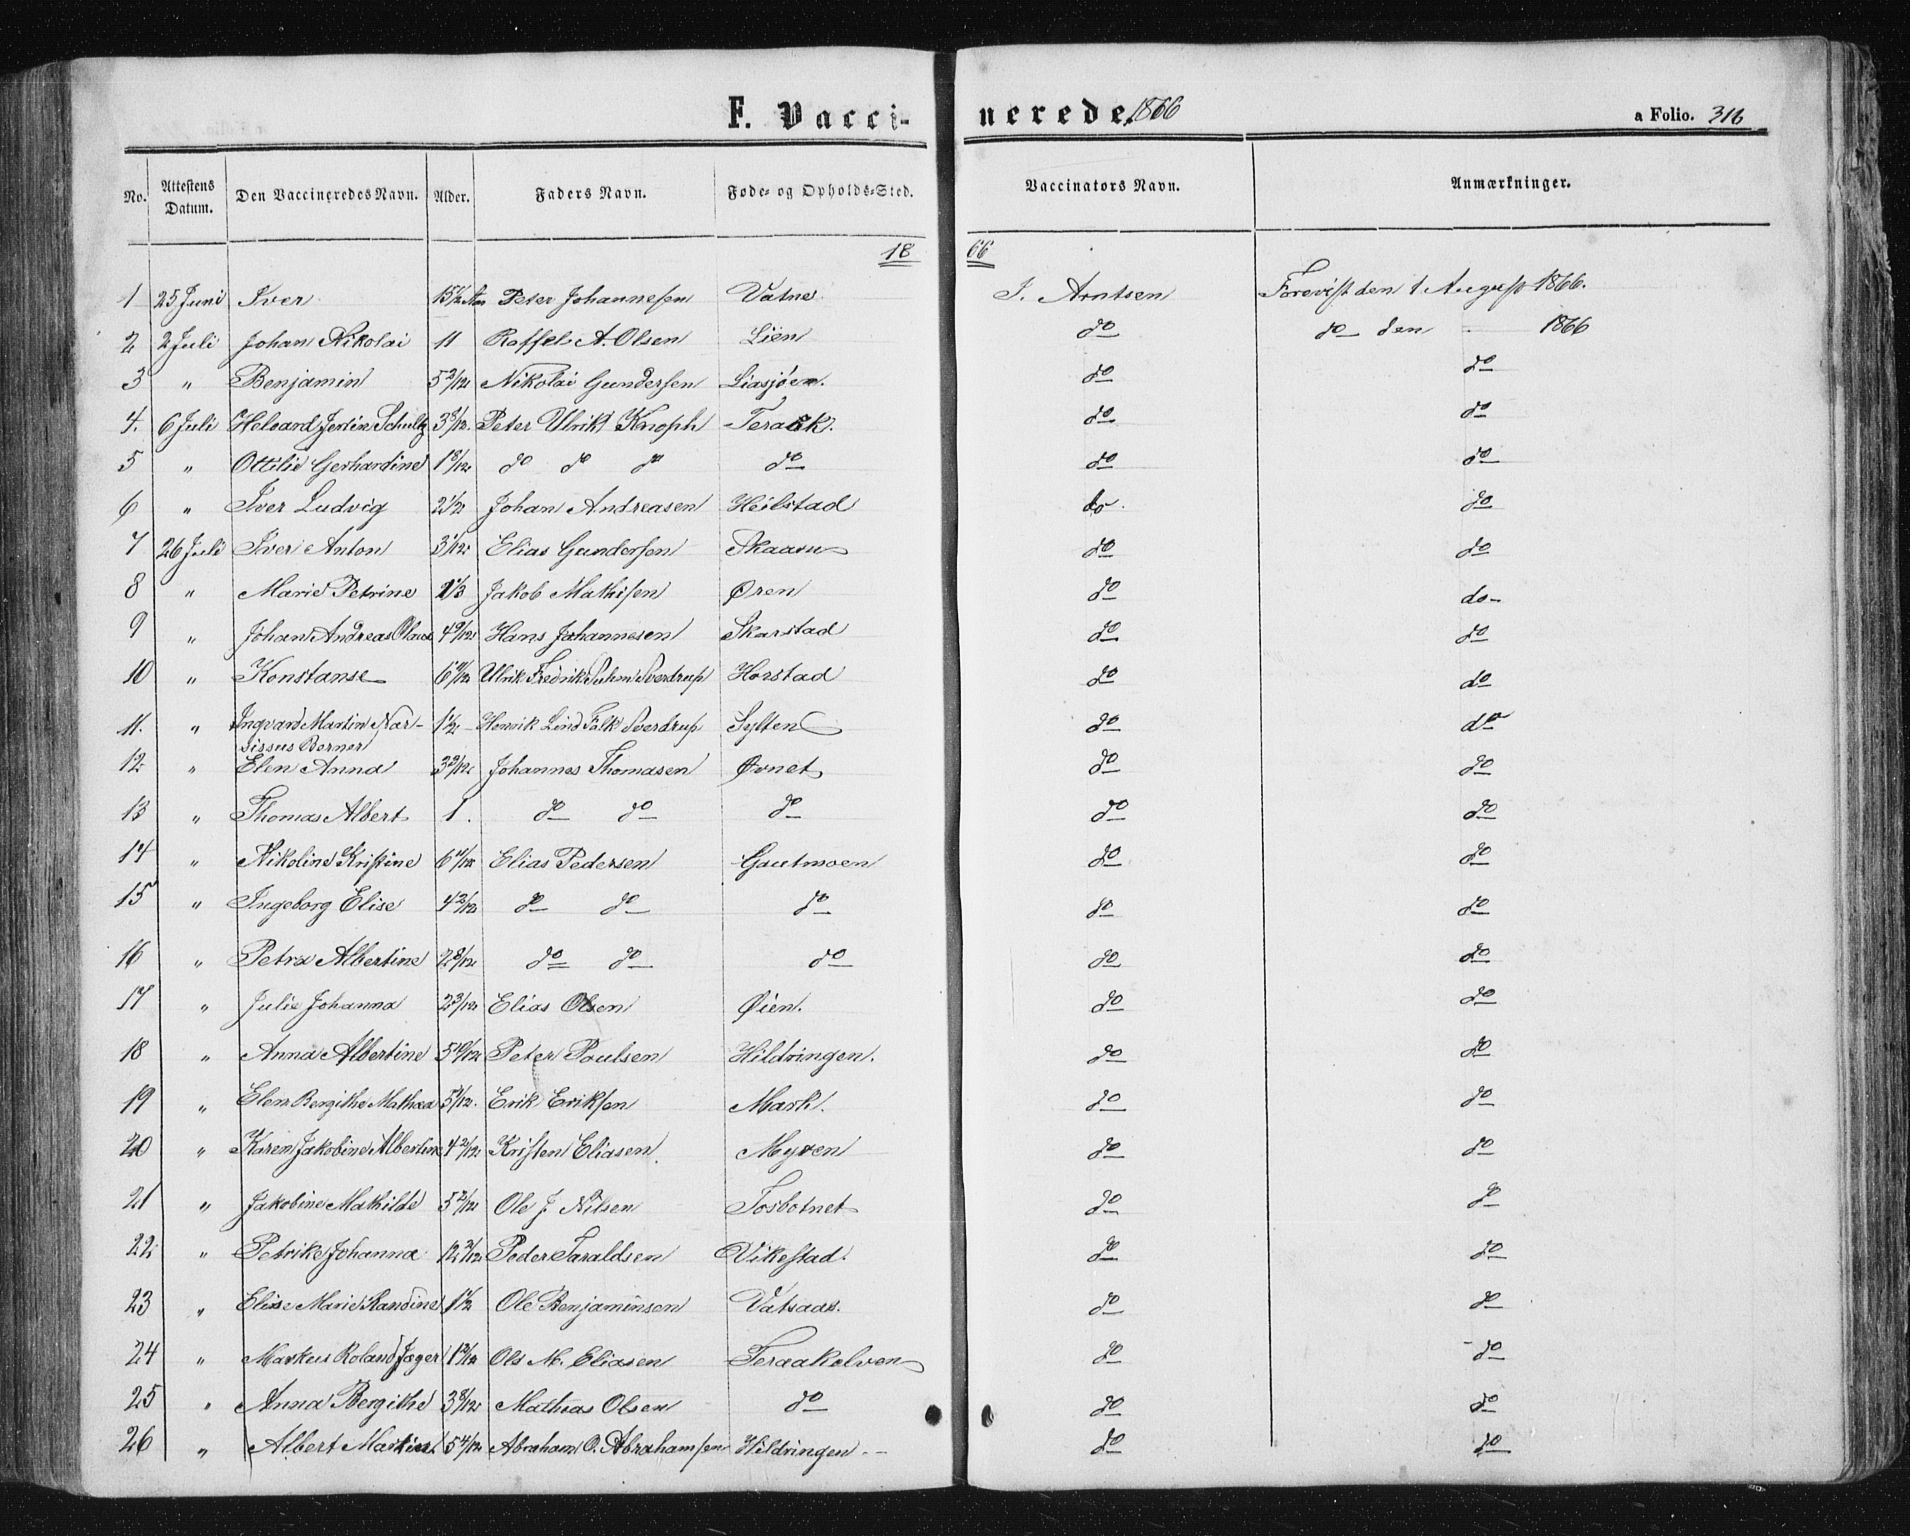 F. Vacci- nerede. 1866 a Folio. 316
No. Attestens Datum. Den Vaccineredes Navn. Alder. Faders Navn. Føde- og Opholds-Sted. Vaccinators Navn. Anmærkninger.
18 66
1 25 Juni Iver 15 1/2 Aar Peter Johannesen Vatne J. Arntsen Forevist den 1 August 1866.
2 2 Juli Johan Nikolai 11 Raffel A. Olsen Lien do do den - 1866
3 " Benjamin 5 2/12 Nikolai Gundersen Liasjøen. do do
4. 6 Juli Helvard Jertin Schultz 3 8/12. Peter Ulrik Knoph Teraak. do do
5 " Ottilie Gerhardine 1 8/12 do do do do do do
6 " Iver Ludvig 2 1/2 Johan Andreasen Heilstad do. do
7 26 Juli Iver Anton 3 1/12 Elias Gundersen Skaaru do do
8 " Marie Petrine 2 1/3 Jakob Mathisen Øren do do-
9 " Johan Andreas Olaus 4 9/12 Hans Johannesen Skarstad do do
10 " Konstanse 6 11/12 Ulrik Fredrik Suhm Sverdrup Horstad do do
11. " Ingvard Martin Nar- 1 1/2 - Henrik Lind Falk Sverdrup Sylten do do
sissus Berner
12 " Elen Anna 3 9/12 Johannes Thomasen Øvnet do do
13 " Thomas Albert 1. do do do do do
14 " Nikoline Kristine 6 11/12 Elias Pedersen Gautmoen do do
15 " Ingeborg Elise 4 2/12 do do do do do
16 " Petra Albertine 2 8/12 do do do do do
17 " Julie Johanna 2 3/12 Elias Olsen Øien. do do
18 " Anna Albertine 5 10/12 Peter Poulsen Hildringen. do do
19 " Elen Bergithe Mathea 5 4/12. Erik Eriksen Mark. do do
20 " Karen Jakobine Albertine 4 2/12 Kristen Eliasen Myren do do
21 " Jakobine Mathilde 5 2/12 Ole J. Nilsen Tosbotnet do do
22 " Petrike Johanna 12 3/12 Peder Taraldsen Vikestad. do do
23 " Elise Marie Randine 1 1/2 Ole Benjaminsen Vatsaas. do do
24 " Markus Roland Jæger 1 2/12 Ole M. Eliasen Teraakelven do - do
25 " Anna Bergithe 3 8/12 Mathias Olsen do do do
26 " Albert Martin. 5 4/12 Abraham O. Abrahamsen Hildringen - do do